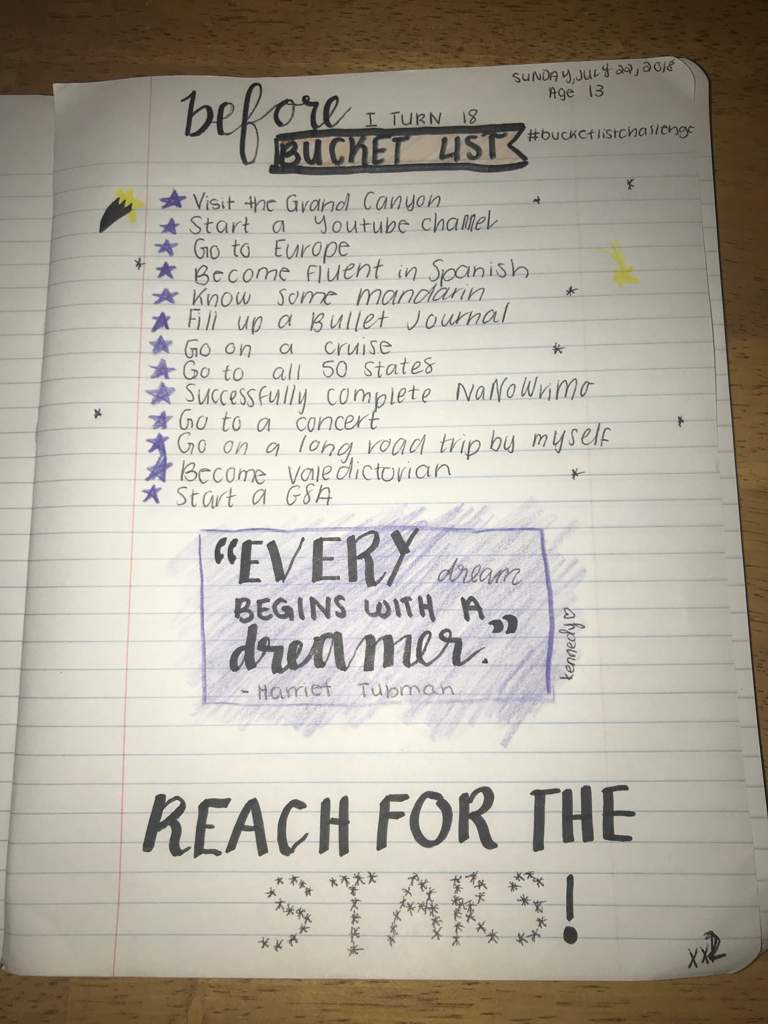 SUNDAY, JULY 22, 2018
Age 13
before I TURN 18
BUCKET LIST
#bucketlistchallenge
Visit the Grand Canyon
Start a Youtube channel
Go to Europe
Become fluent in Spanish
Know some mandarin
Fill up a Bullet Journal
Go on a cruise
Go to all 50 states
Successfully complete NaNoWriMo
Go to a concert
Go on a long road trip by myself
Become valedictorian
Start a GSA
“EVERY dream
BEGINS WITH A
dreamer.”
- Harriet Tubman
kennedy♡
REACH FOR THE
STARS!